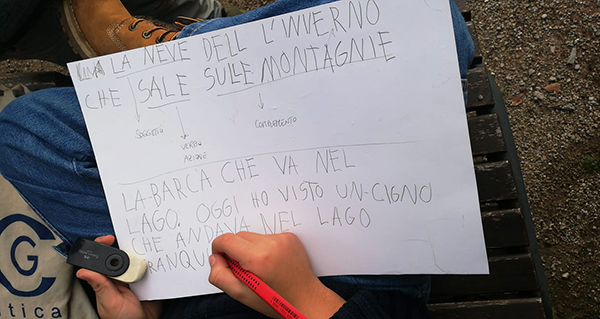 LA NEVE DELL L'INVERNO
CHE SALE SULLE MONTAGNIE
SOGGETTO
VERBO
AZIONE
COMPLEMENTO
LA BARCA CHE VA NEL
LAGO. OGGI HO VISTO UN CIGNO
CHE ANDAVA NEL LAGO
RANQU
CG
tica